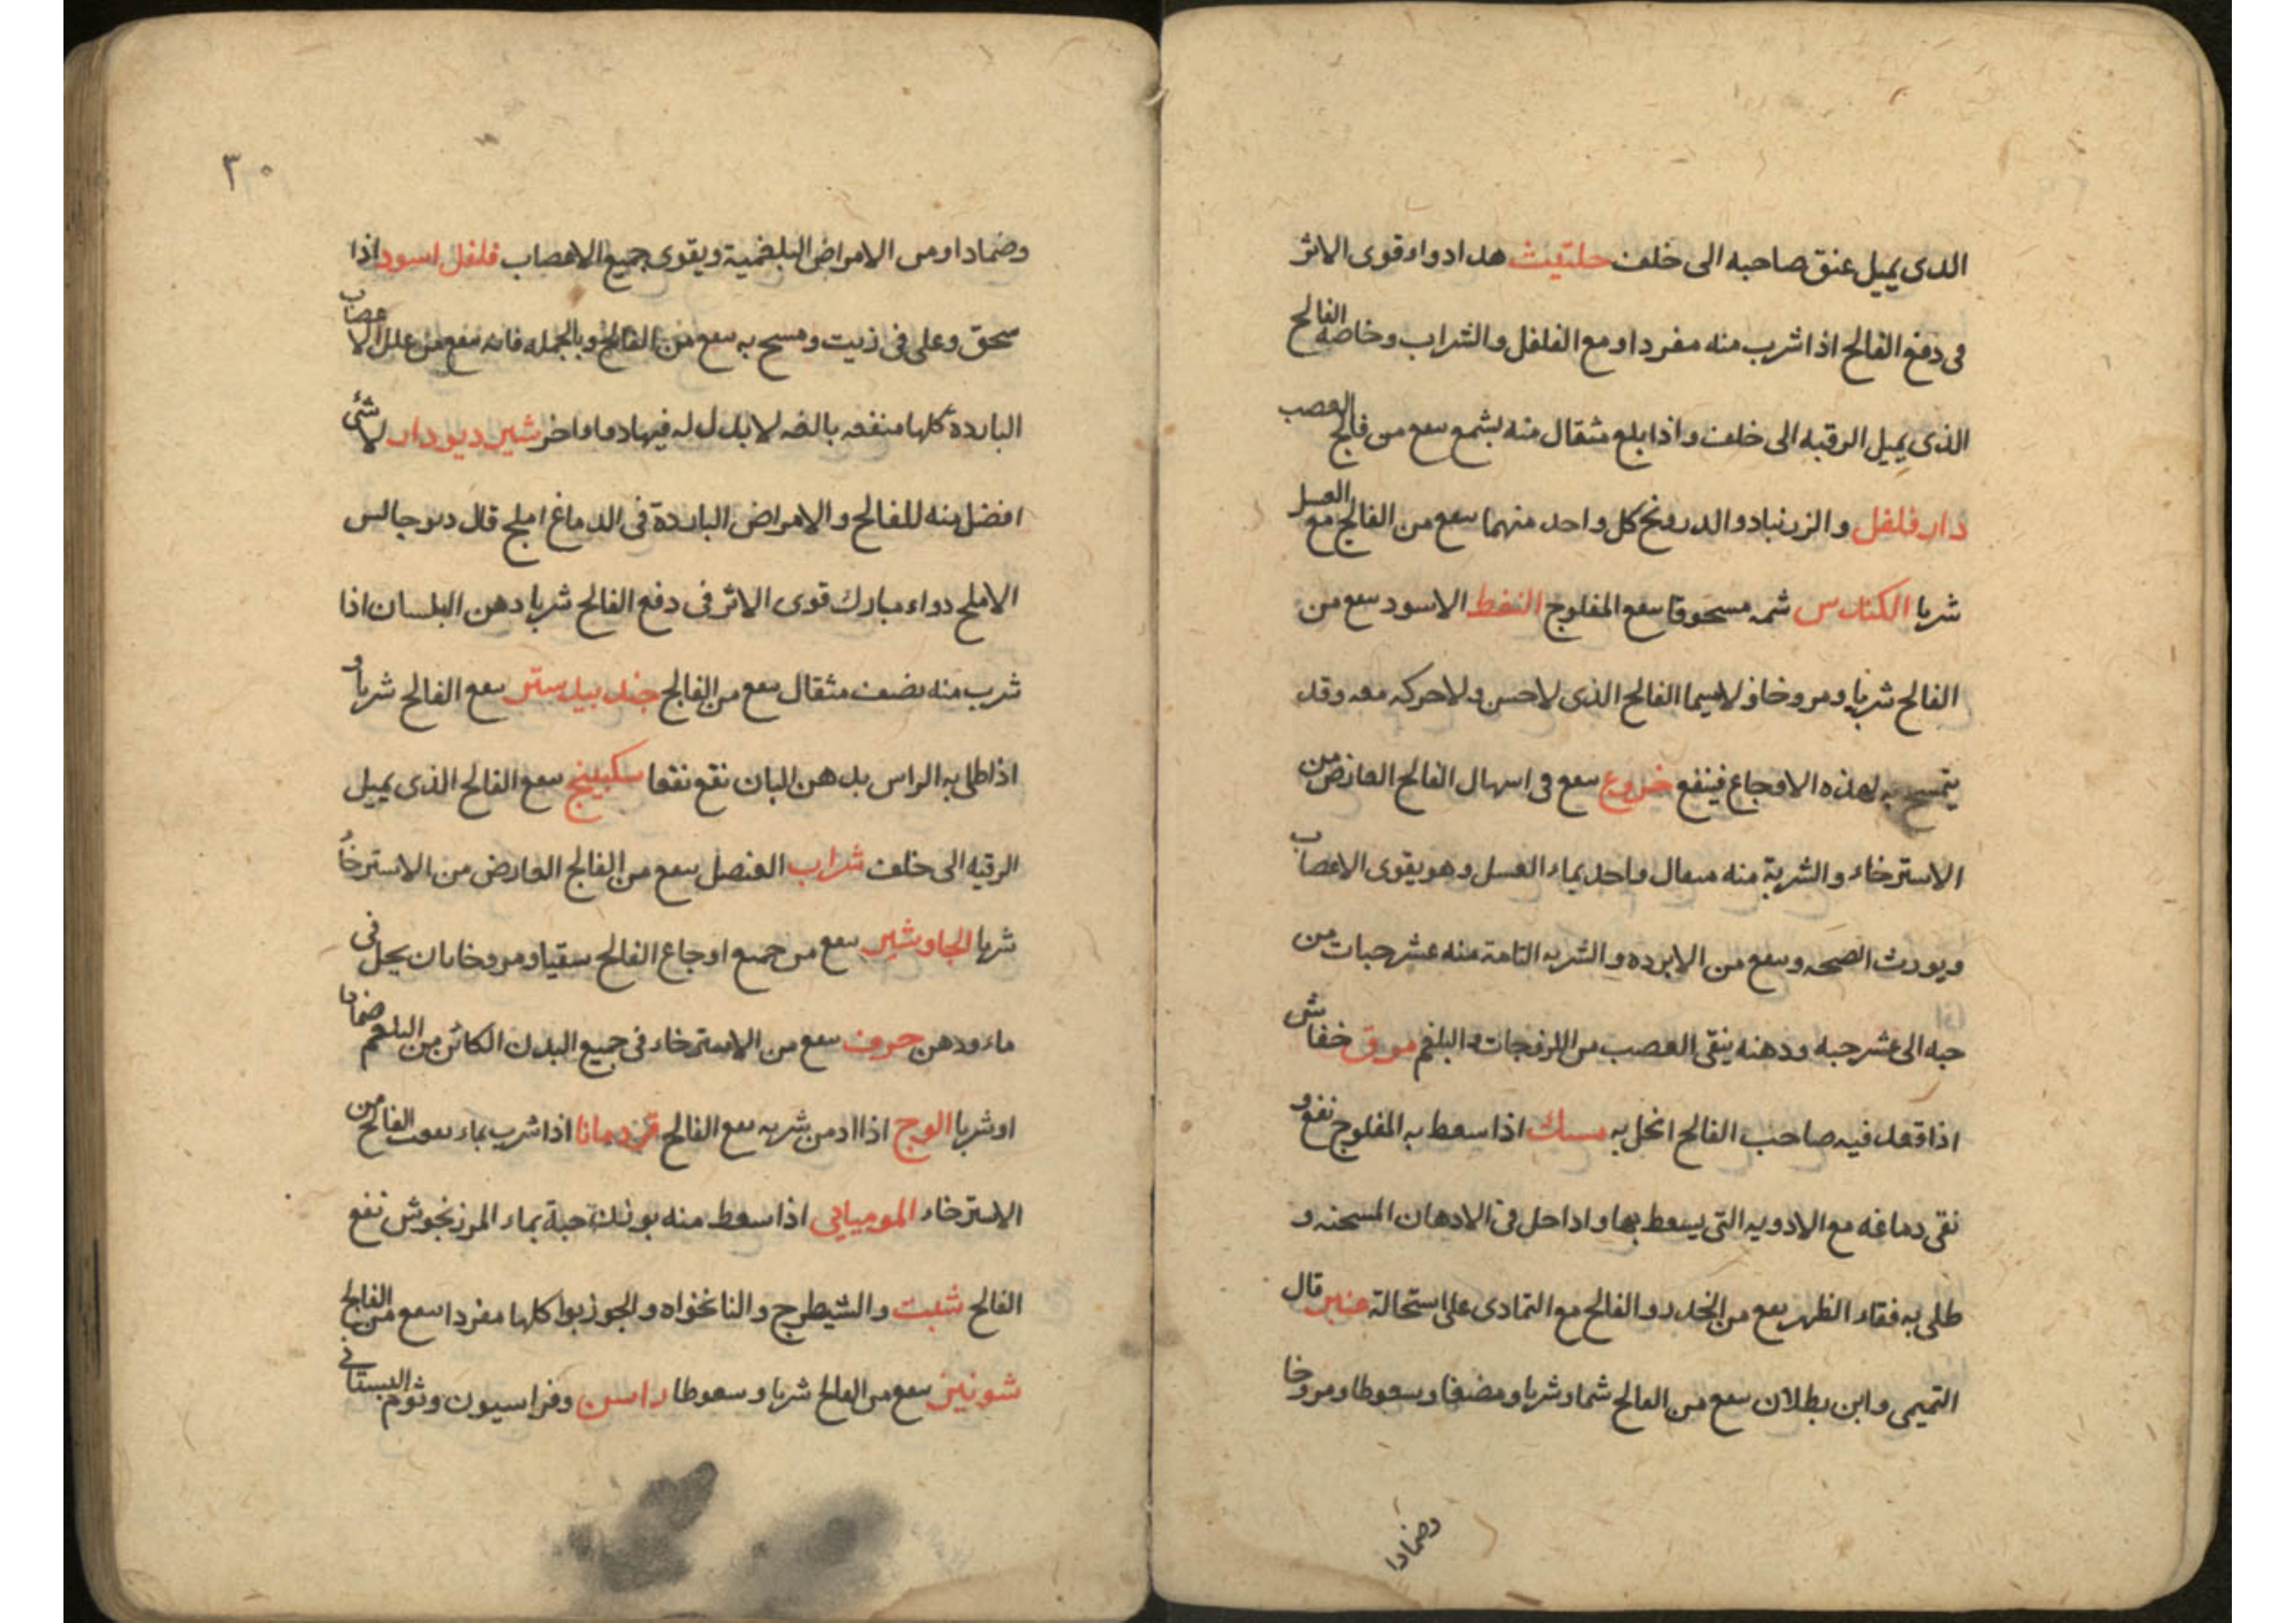 الذى يميل عنق صاحبه الى خلف حلتيث هذا دواء قوى الاثر
فى دفع الفالج اذا شرب منه مفردا و مع الفلفل والشراب وخاصة الفالج
الذى يميل الرقبه الى خلف واذا بلع مثقال منه بشمع ىىفع من فالج العصب
دار فلفل والزرنباد والدرونج كل واحد منهما ىىفع من الفالج مع العسل
شربا الكندس شمه مسحوقا ىىفع المفلوج النفط الاسود ىىفع من
الفالج شربا ومروخا ولاسيما الفالج الذى لاحس ولاحركه معه وقد
يتمسح به لهذه الاوجاع فينفع خروع ىىفع فى اسهال الفالج العارض من
الاسترخاء والشربة منه مىىقال واحد بماء العسل وهو يقوى الاعصاب
ويورث الصحه وىىفع من الابرده والشربه التامة منه عشر حبات من
حبه الى عشر حبه ودهنه ينقى العصب من اللزوجات والبلغم مرق خفاش
اذا قعد فيه صاحب الفالج انحل به مسك اذا سعط به المفلوج نفع و
نقى دماغه مع الادويه التى يسعط بها واذا حل فى الادهان المسخنه و
طلى به فقاء الظهر ىىفع من الخدر والفالج مع التمادى على استحالة عنبر قال
التميمى وابن بطلان ىىفع من الفالج شما وشربا ومضغا وسعوطا ومروخا
وضمادا
٣٠
وضمادا ومن الامراض البلغمية ويقوى جميع الاعصاب فلفل اسود اذا
سحق وغلى فى زيت ومسح به ىىفع من الفالج وبالجمله فانه ىىفع من علل الاعصاب
الباردة كلها منفعه بالغه لا بدل له فيها دواء اخر شير ديودار لا شئ
افضل منه للفالج والامراض الباردة فى الدماغ املج قال
الاملج دواء مبارك قوى الاثر فى دفع الفالج شربا دهن البلسان اذا
شرب منه نصف مثقال ىىفع من الفالج جندبيدستر ىىفع الفالج شربا و
اذا طلى به الراس بدهن البان نفع نفعا سكبينج ىىفع الفالج الذى يميل
الرقبه الى خلف شراب العنصل ىىفع من الفالج العارض من الاسترخاء
شربا الجاوشير ىىفع من جميع اوجاع الفالج سقيا ومروخا بان يحل فى
ماء ودهن حرف ىىفع من الاسترخاء فى جميع البدن الكائن من البلغم ضمادا
او شربا الوج اذا ادمن شربه ىىفع الفالج قردمانا اذا شرب بماء الفالج من
الاسترخاء الموميايى اذا سعط منه بوزن حبة بماء المرزنجوش نفع
الفالج شبت والشيطرج والنانخواه والجوزبوا كلها مفردا ىىفع من الفالج
شونيز ىىفع من الفالج شربا وسعوطا راسن وفراسيون وثوم البستانى